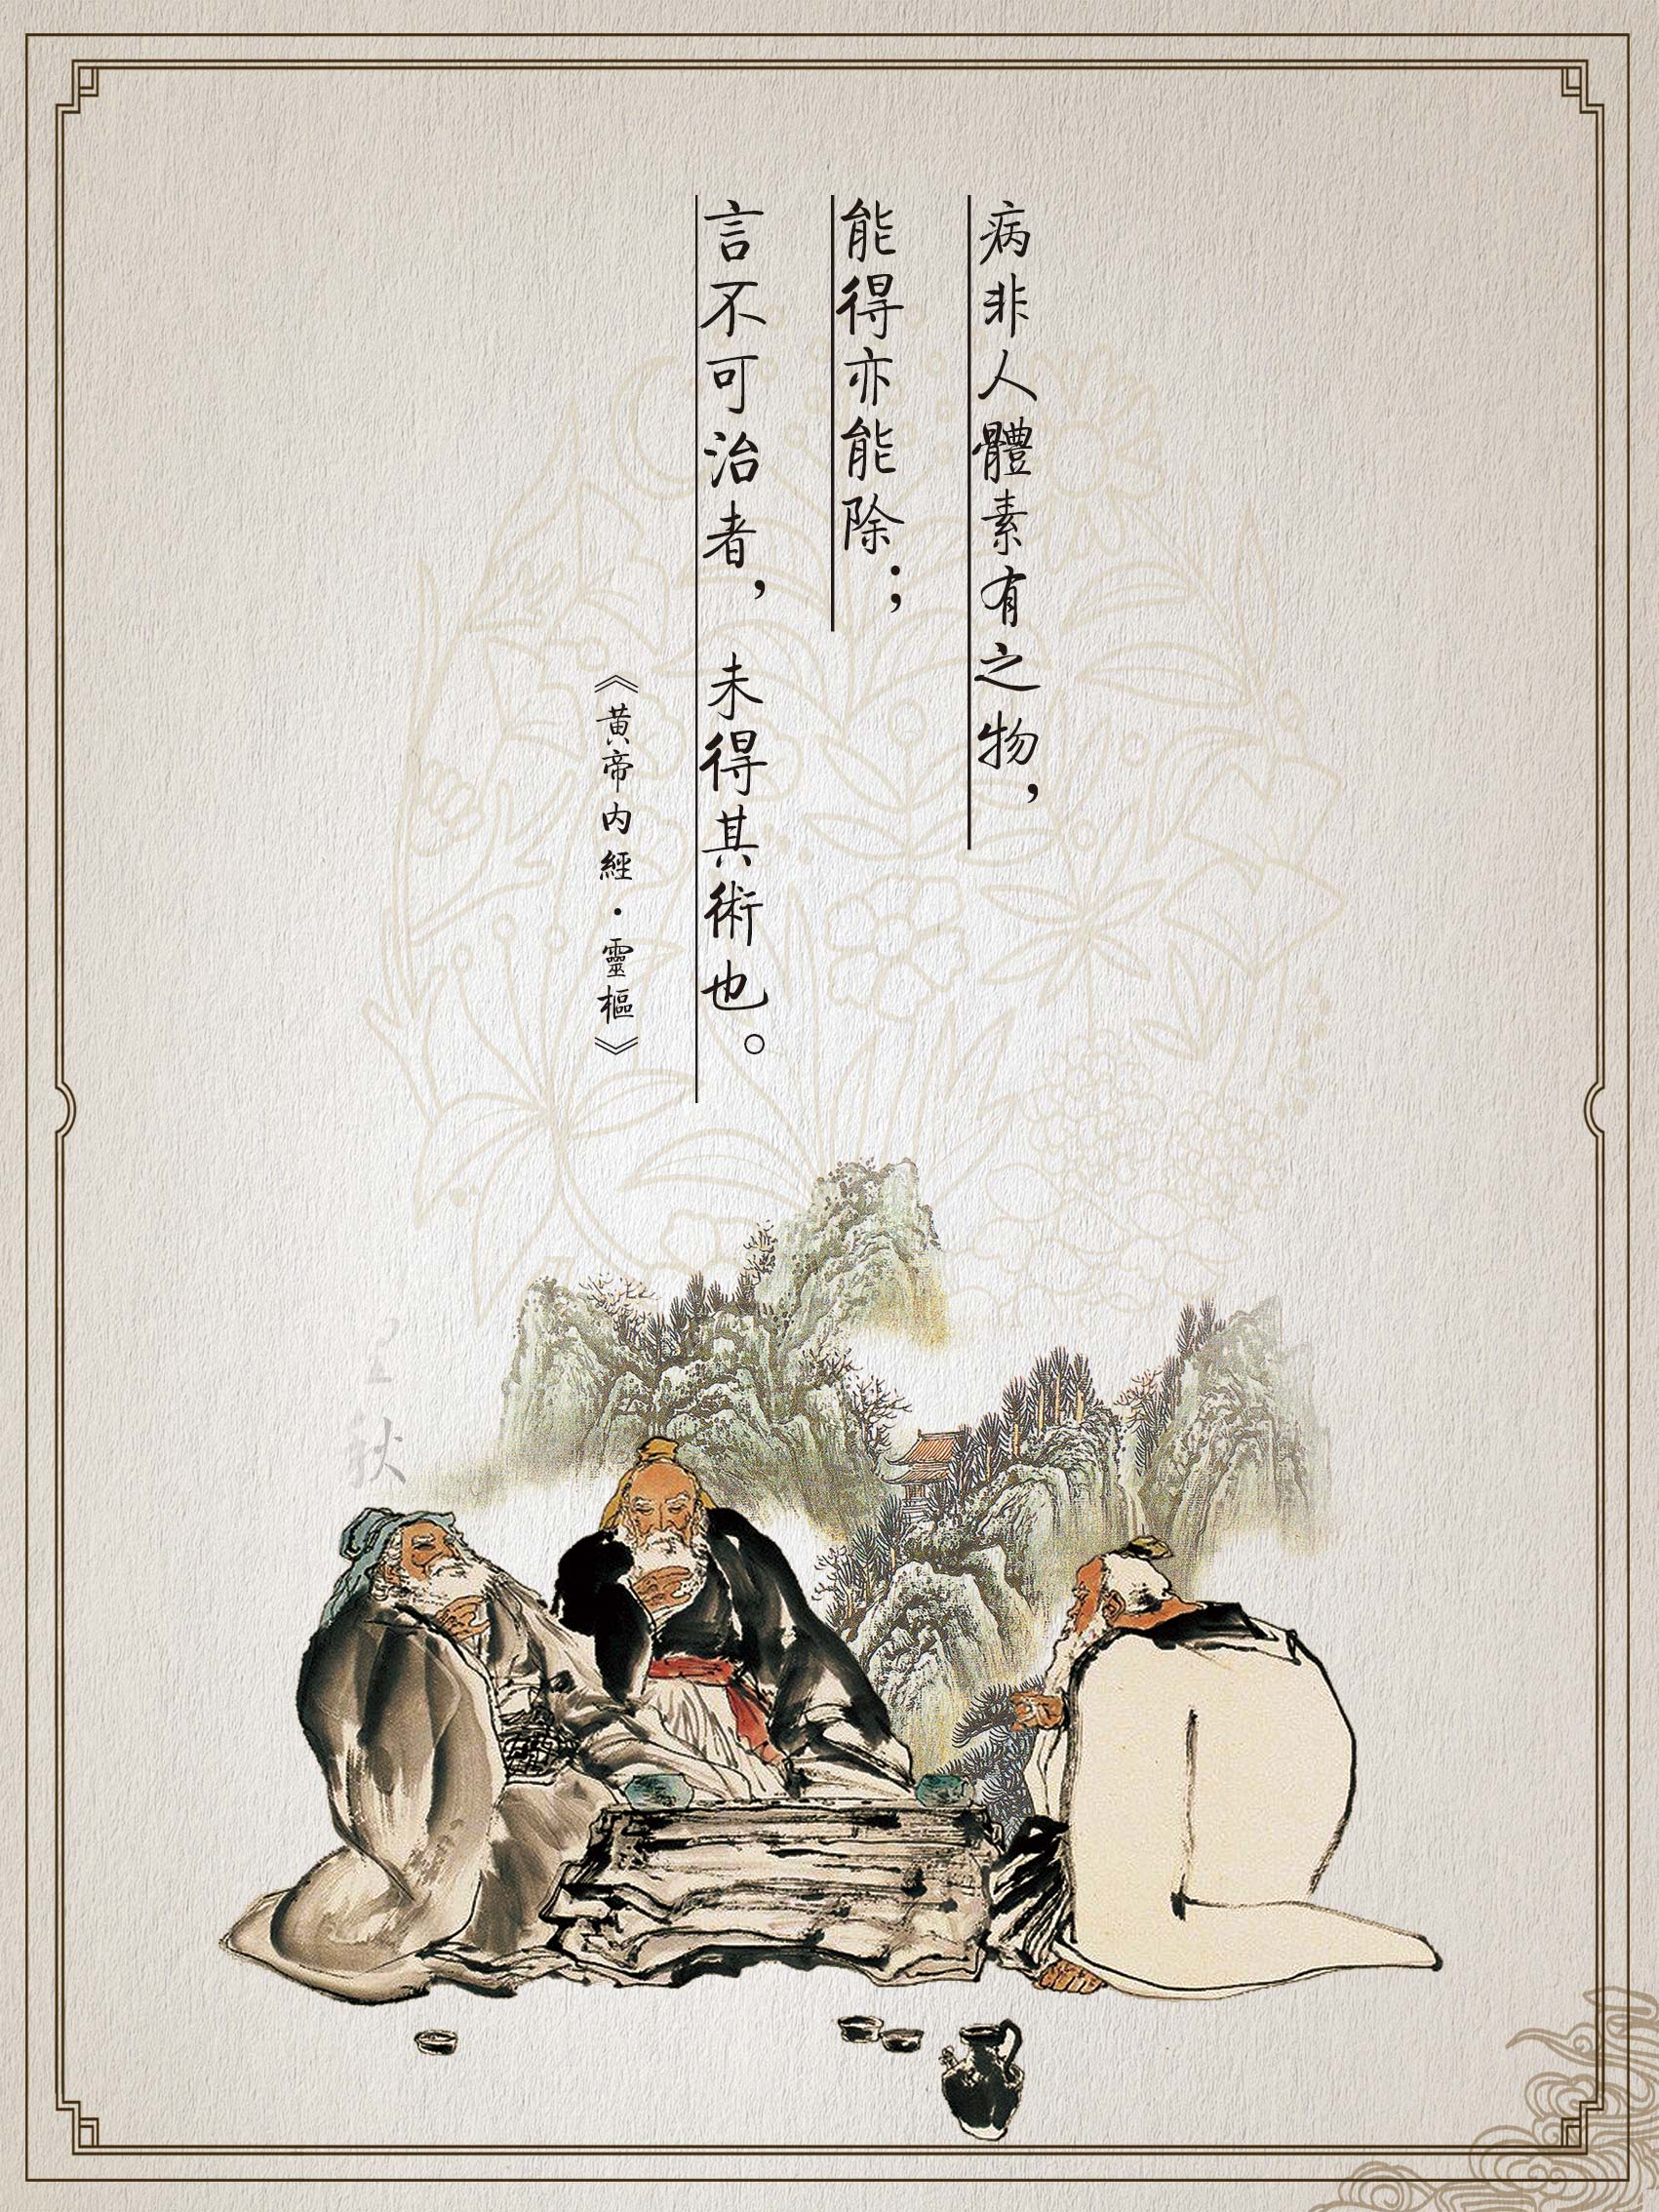 病非人體素有之物，
能得亦能除；
言不可治者，未得其術也。
《黃帝內經·靈樞》
秋